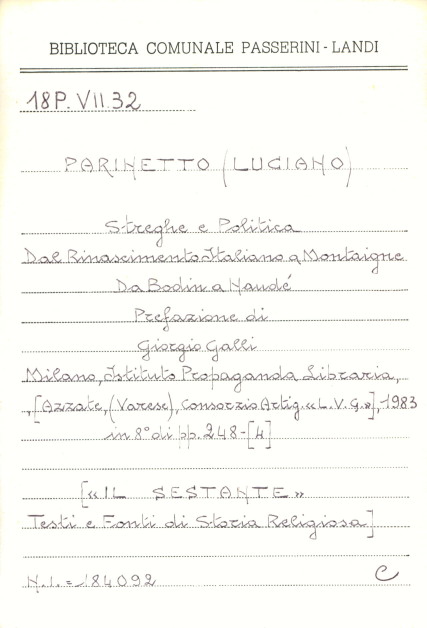 BIBLIOTECA COMUNALE PASSERINI-LANDI
18P.VII.32
PARINETTO (LUCIANO)
Streghe e Politica
Dal Rinascimento Italiano a Montaigne
Da Bodin a Naudé
Prefazione di
Giorgio Galli
Milano, Istituto Propaganda Libraria,
,[Azzate, (Varese), Consorzio Artig. «L.V.G.»], 1983
in 8° di pp. 248-[4]
[«IL SESTANTE»
Testi e Fonti di Storia Religiosa]
N.I. = 184092 C